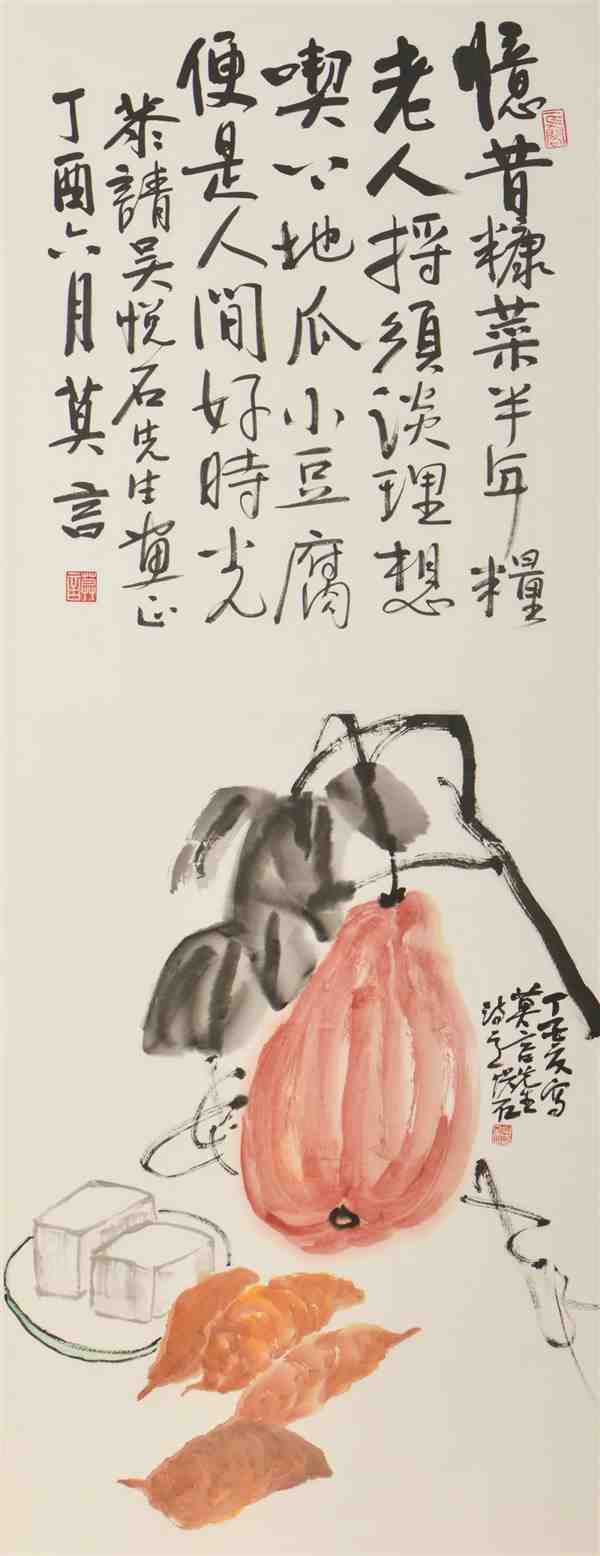 憶昔糠菜半年糧
老人捋須谈理想
喫口地瓜小豆腐
便是人間好時光
恭請吳悅石先生畫正
丁酉六月莫言
莫言
丁酉夏寫
莫言先生
詩意悅石